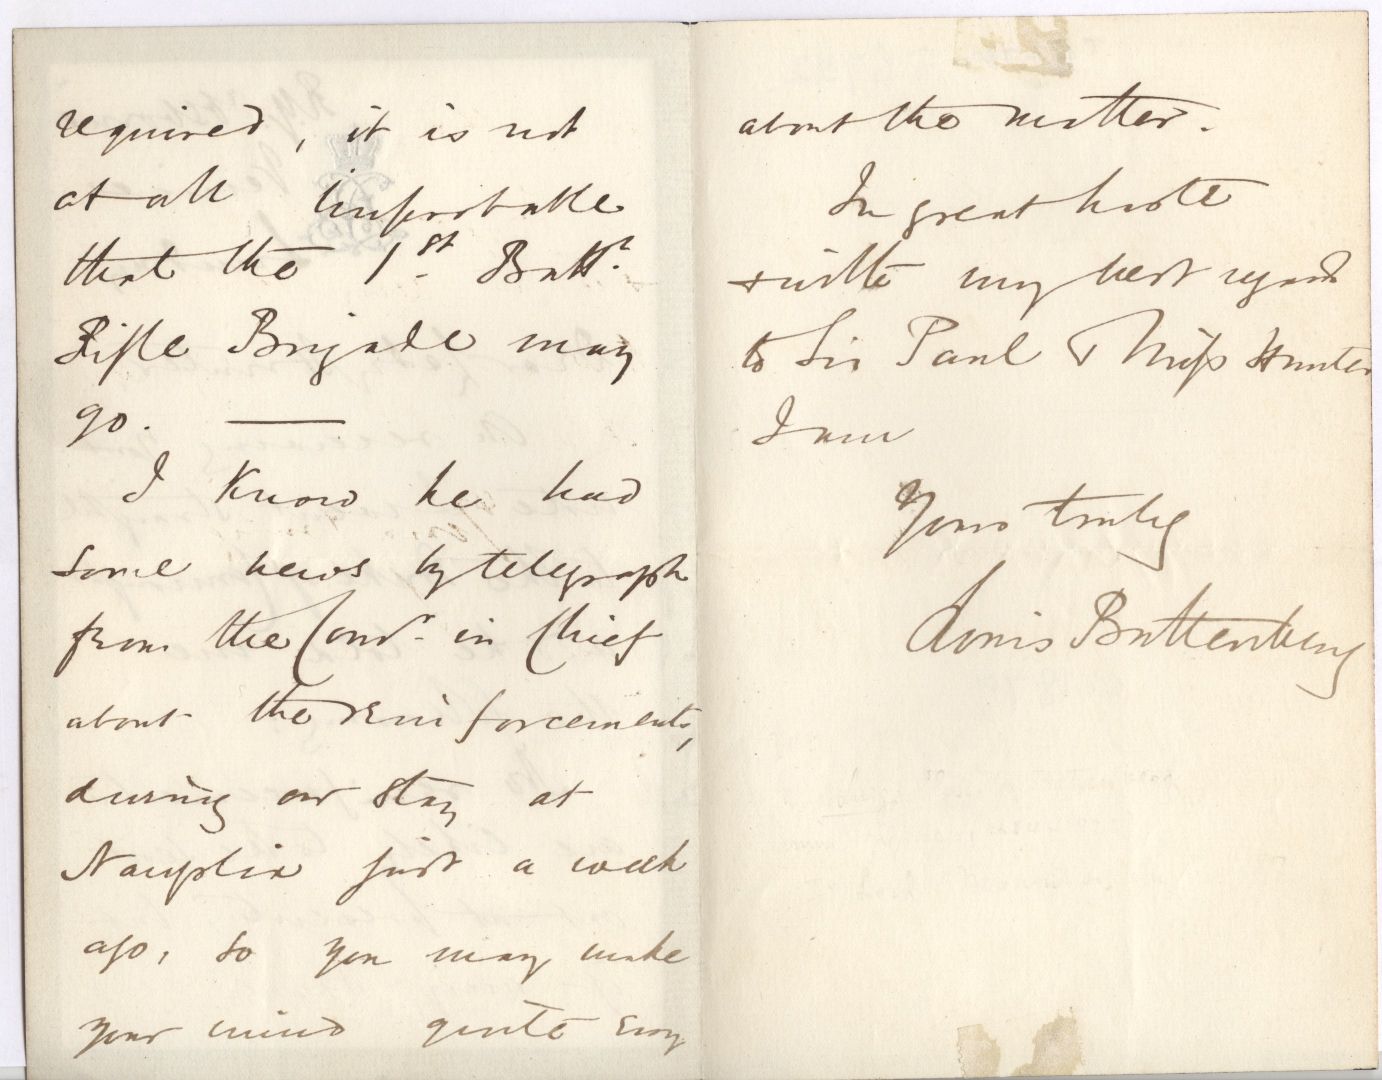 required, it is not
at all improbable
that the 1st Battn.
Rifle Brigade may
go. —
I know he had
some news by telegraph
from the Comr. in Chief
about the reinforcements,
during our stay at
Nauplia just a week
ago, so you may make
your mind quite easy
about the matter.
In great haste
& with my best regards
to Sir Paul & Miss Hunter
I am
Yours truly
Louis Battenberg